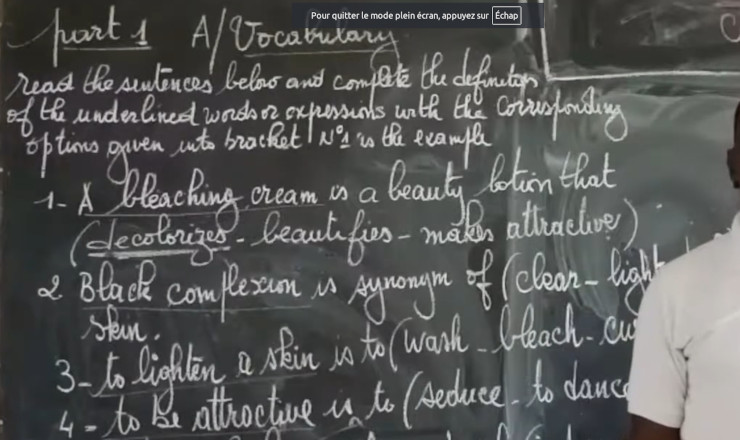 Pour quitter le mode plein écran, appuyez sur Échap
part 1 A/ Vocabulary
read the sentences below and complete the definition
of the underlined words or expressions with the corresponding
options given into bracket N°1 is the example
1- A bleaching cream is a beauty lotion that
(decolorizes - beautifies - makes attractive)
2 Black complexion is synonym of (clear - light
skin.
3- to lighten a skin is to (wash - bleach - cu
4 - to be attractive is to (seduce - to dance